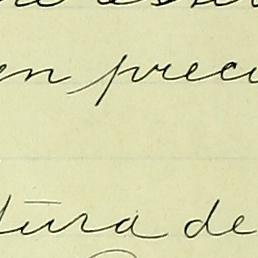 en preci
tura de